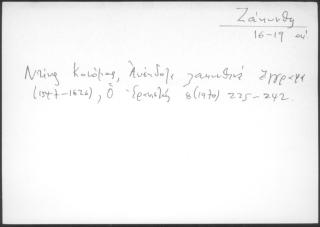 Ζάκυνθος
16-19 αἰ
Ντίνος Κονόμος, Ἀνέκδοτα ζακυνθινά ἔγγραφα
(1547-1826), Ὁ Ἐρανιστής 8 (1970) 225-242.